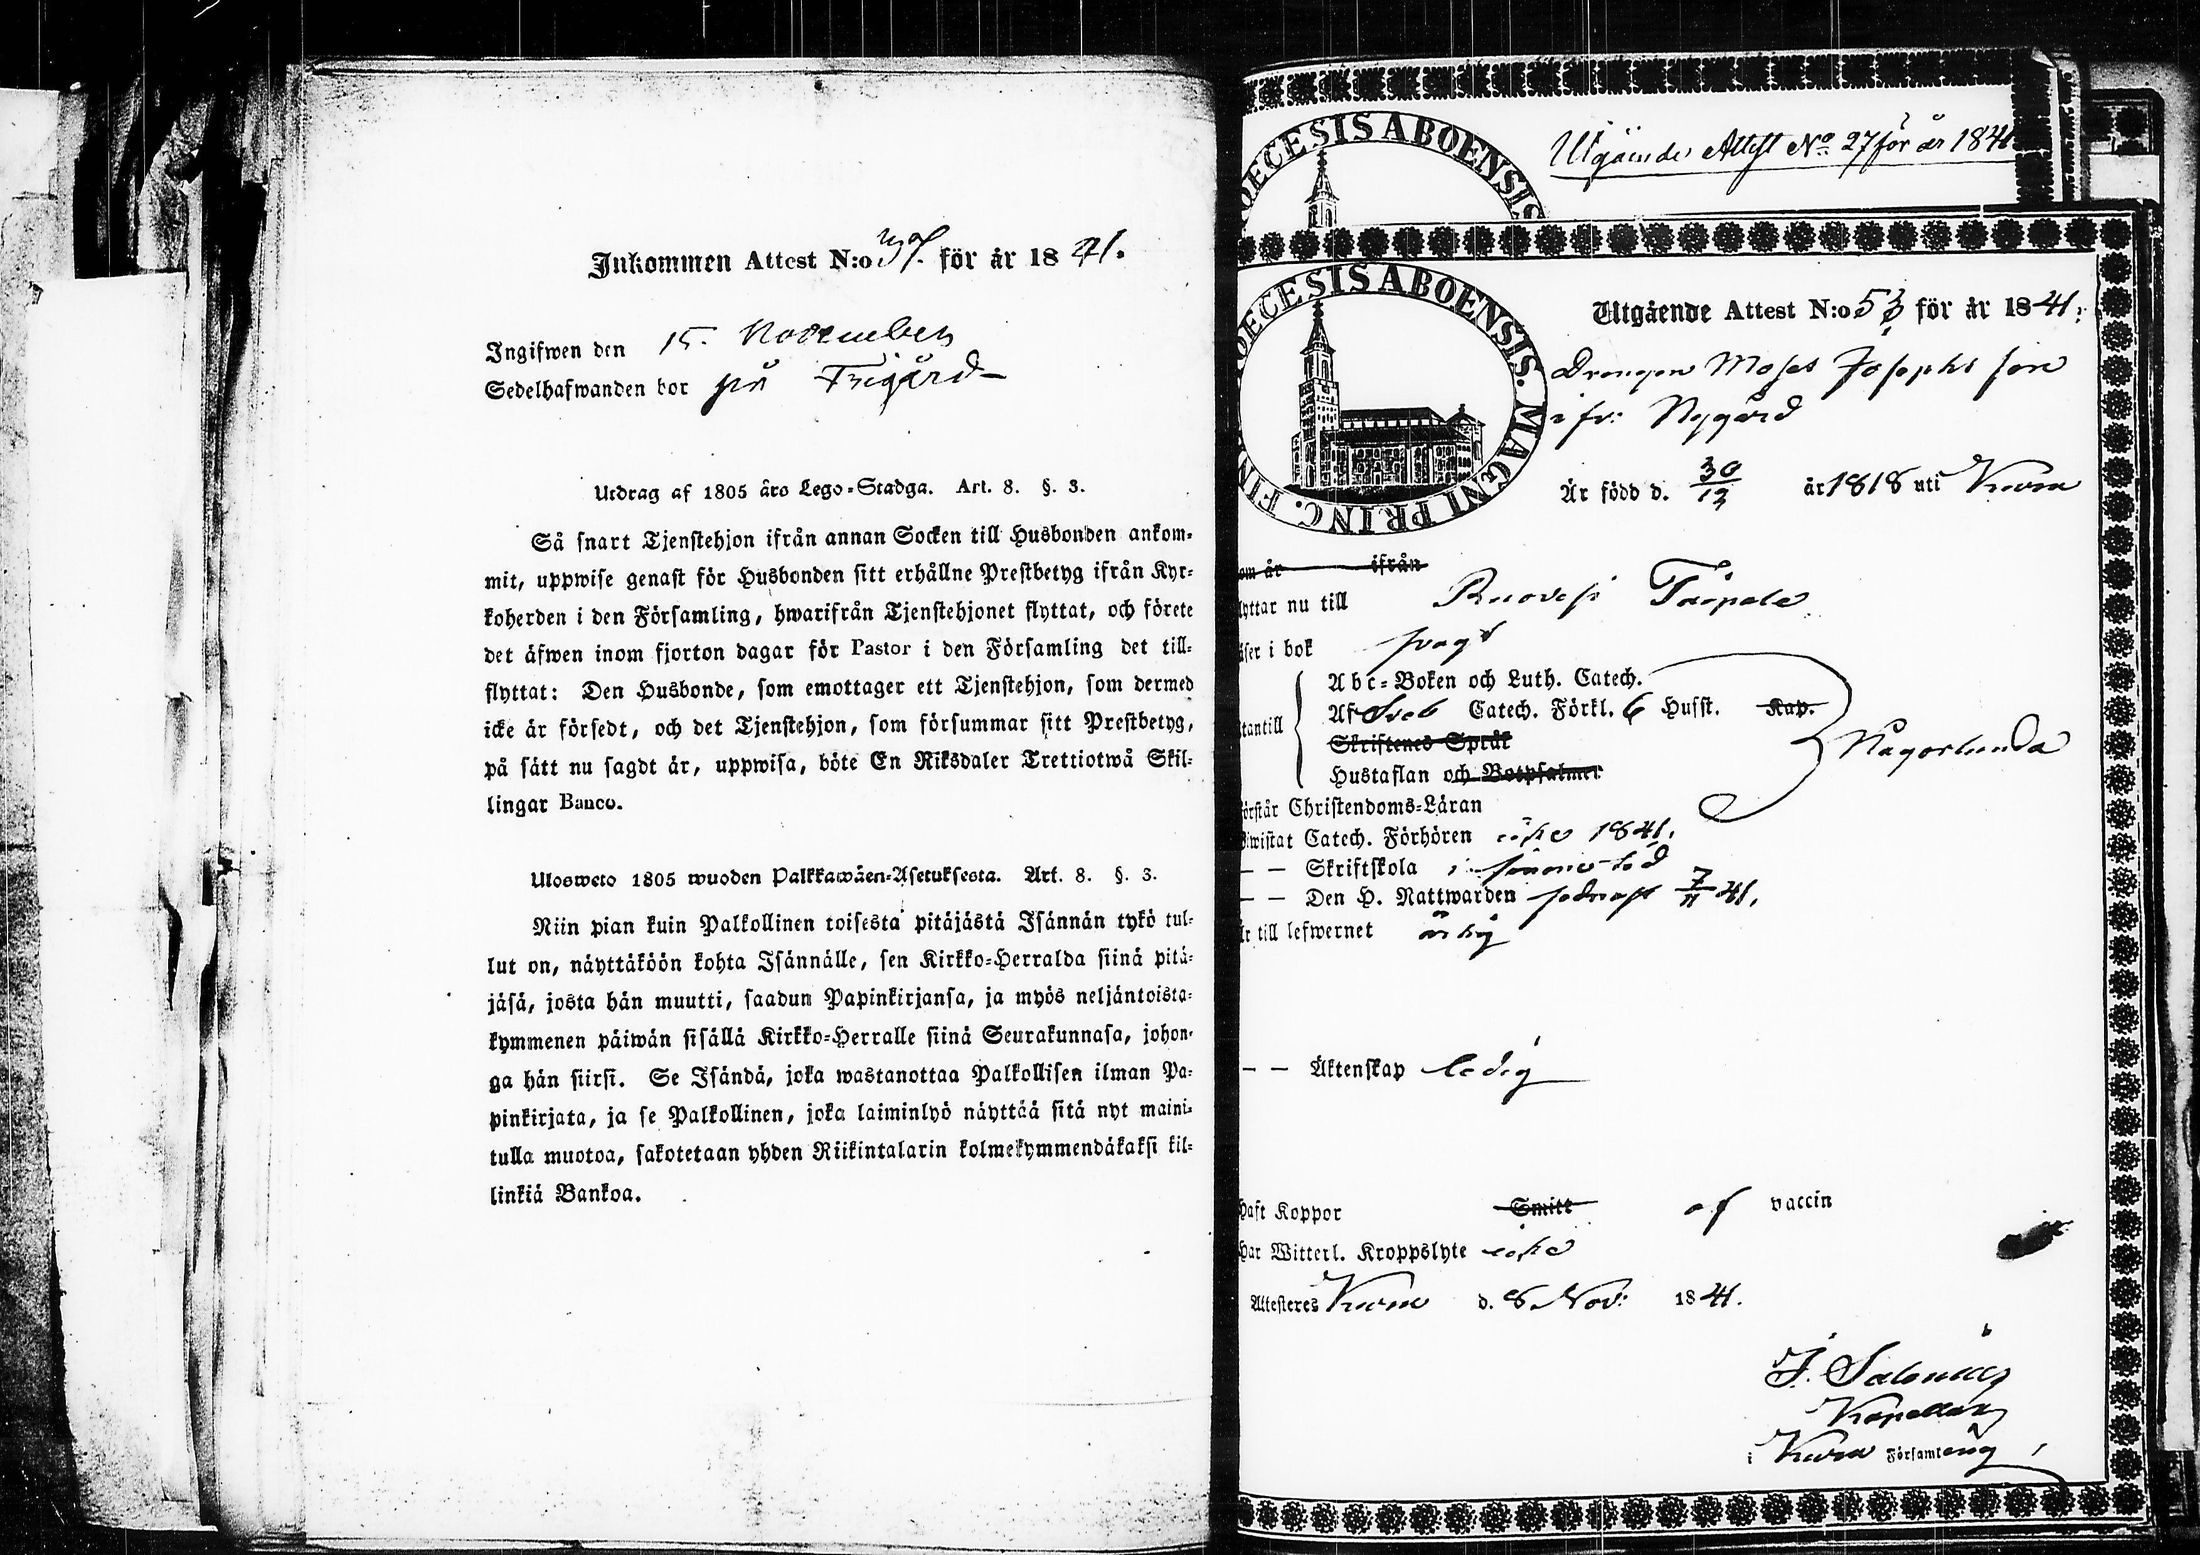 Inkommen Attest N:o 37. för år 1841.
Ingifwen den 15. November
Sedelhafwanden bor på
Utdrag af 1805 års Lego-Stadga. Art. 8. §. 3.
Så snart Tjenstehjon ifrån annan Socken till Husbonden ankom-
mit, uppwise genast för Husbonden sitt erhållne Prestbetyg ifrån Kyr-
koherden i den Församling, hwarifrån Tjenstehjonet flyttat, och förete
det äfwen inom fjorton dagar för Pastor i den Församling det till-
flyttat: Den Husbonde, som emottager ett Tjenstehjon, som dermed
icke är försedt, och det Tjenstehjon, som försummar sitt Prestbetyg,
på sätt nu sagdt är, uppwisa, böte En Riksdaler Trettiotwå Skil-
lingar Banco.
Ulosweto 1805 wuoden Palkkawäen-Asetuksesta. Art. 8. §. 3.
Niin pian kuin Palkollinen toisesta pitäjästä Isännän tykö tul-
lut on, näyttäköön kohta Isännälle, sen Kirkko-Herralda siinä pitä-
jäsä, josta hän muutti, saadun Papinkirjansa, ja myös neljäntoista-
kymmenen päiwän sisällä Kirkko-Herralle siinä Seurakunnasa, johon-
ga hän siirsi. Se Isändä, joka wastanottaa Palkollisen ilman Pa-
pinkirjata, ja se Palkollinen, joka laiminlyö näyttää sitä nyt maini-
tulla muotoa, sakotetaan yhden Riikintalarin kolmekymmendäkaksi kil-
linkiä Bankoa.
Utgående Attest No 27 för år 1841
OECESIS ABOENSIS
OECESIS ABOENSIS. MAGNI PRINC. FIN
Utgående Attest N:o 53 för år 1841.
Drengen Moses Josephs son
ifr: Nygård
Är född d. 30/12 år 1818 uti Kuru
om är ifrån
lyttar nu till Ruovesi Taipale
äser i bok svagt
Abc-Boken och Luth. Catech.
tantill Af Sveb Catech. Förkl. 6 Husst. Kap. Någorlunda
Skriftenes Språk
Hustaflan och Botpsalmer
örstår Christendoms-Läran
wistat Catech. Förhören icke 1841.
— — Skriftskola i
— — Den H. Nattwarden sednast 7/11 41.
är till lefwernet ärlig
— — Äktenskap ledig
Haft Koppor Smitt af vaccin
Har Witterl. Kroppslyte icke
Attesteres Kuru d. 8 Nov: 1841.
J. Salenius
Kapellan
i Kuru Församling